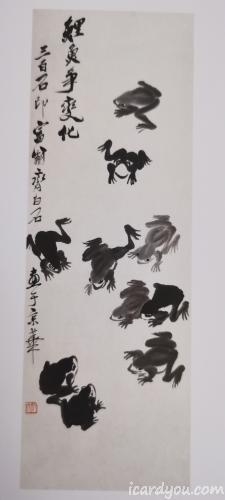 鯉魚爭變化
三百石印富翁齊白石
畫于京華
icardyou.com